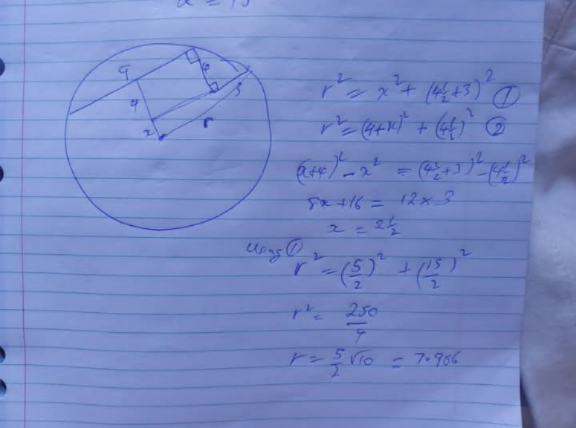 x = 15
9
4
4
3
x
r
r² = x² + (4½+3)² ①
r² = (4+x)² + (4½)² ②
(x+4)² - x² = (4½+3)² - (4½)²
8x+16 = 12 × 3
x = 2½
Using ①
r² = (5/2)² + (15/2)²
r² = 250/4
r = 5/2 √10 = 7.906